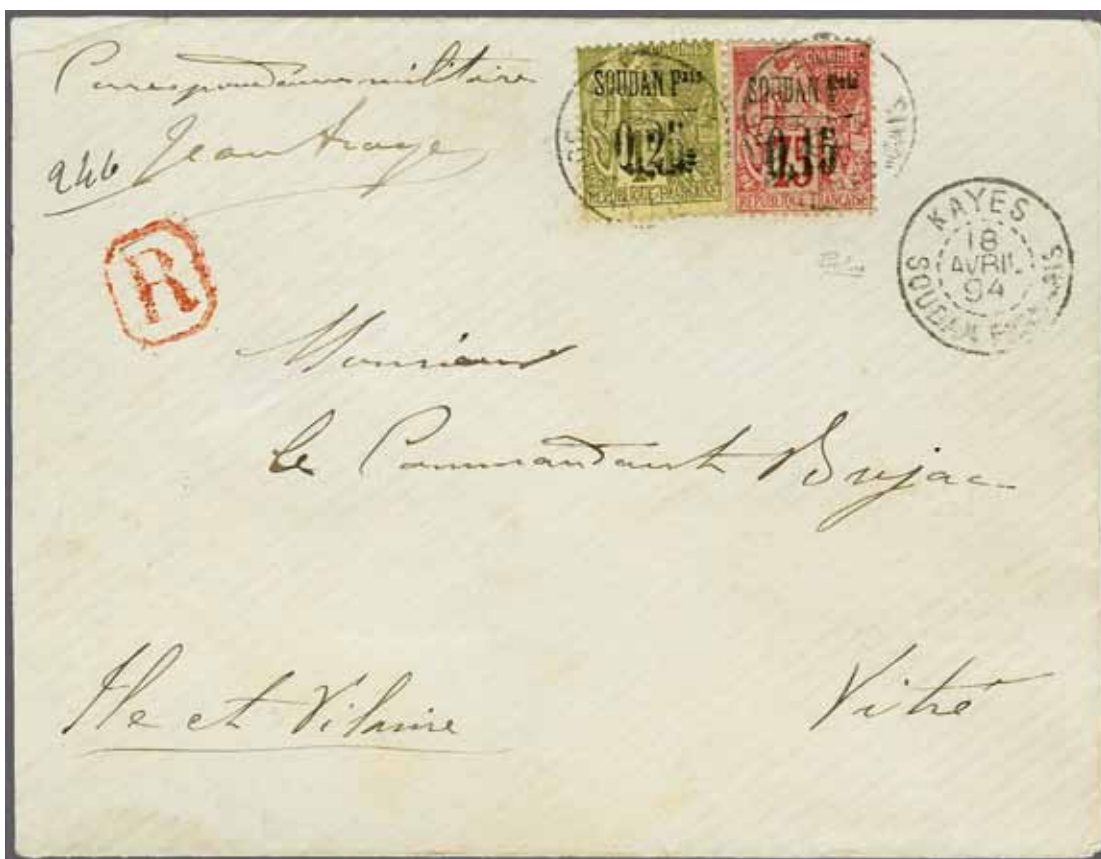 Correspondance militaire
Jean
246
SOUDAN Fais
0,25
RÉPUBLIQUE FRANÇAISE
COLONIES
SOUDAN Fais
0,15
75
RÉPUBLIQUE FRANÇAISE
R
KAYES
18
AVRIL
94
SOUDAN FRANÇAIS
Monsieur
le Commandant Bujac
Vitré
Ile et Vilaine